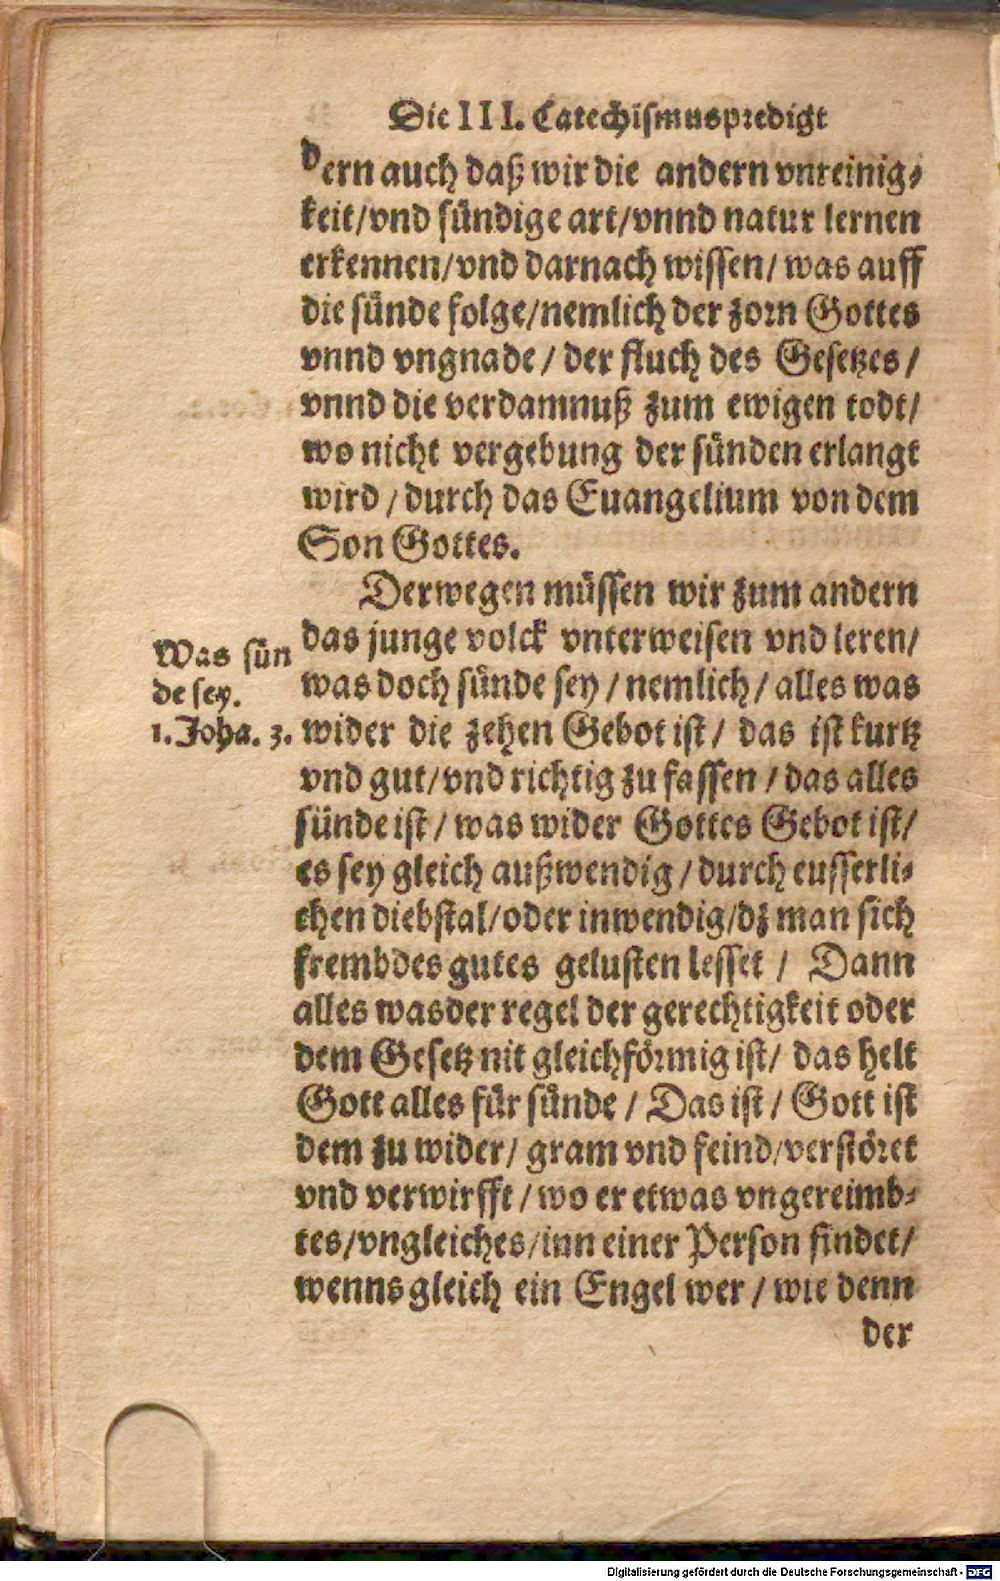 Die III. Catechismuspredigt
dern auch daß wir die andern vnreinig-
keit/vnd sündige art/vnnd natur lernen
erkennen/vnd darnach wissen/ was auff
die sünde folge/nemlich der zorn Gottes
vnnd vngnade / der fluch des Gesetzes /
vnnd die verdamnuß zum ewigen todt/
wo nicht vergebung der sünden erlangt
wird / durch das Euangelium von dem
Son Gottes.
Derwegen müssen wir zum andern
das junge volck vnterweisen vnd leren/
Was sün
de sey.
1. Joha. 3.
was doch sünde sey / nemlich / alles was
wider die zehen Gebot ist / das ist kurtz
vnd gut/vnd richtig zu fassen / das alles
sünde ist / was wider Gottes Gebot ist/
es sey gleich außwendig / durch eusserli-
chen diebstal/oder inwendig/dz man sich
frembdes gutes gelusten lesset / Dann
alles was der regel der gerechtigkeit oder
dem Gesetz nit gleichförmig ist/ das helt
Gott alles für sünde / Das ist / Gott ist
dem zu wider/ gram vnd feind/verstöret
vnd verwirfft / wo er etwas vngereimb-
tes/vngleiches/inn einer Person findet/
wenns gleich ein Engel wer / wie denn
der
Digitalisierung gefördert durch die Deutsche Forschungsgemeinschaft - DFG